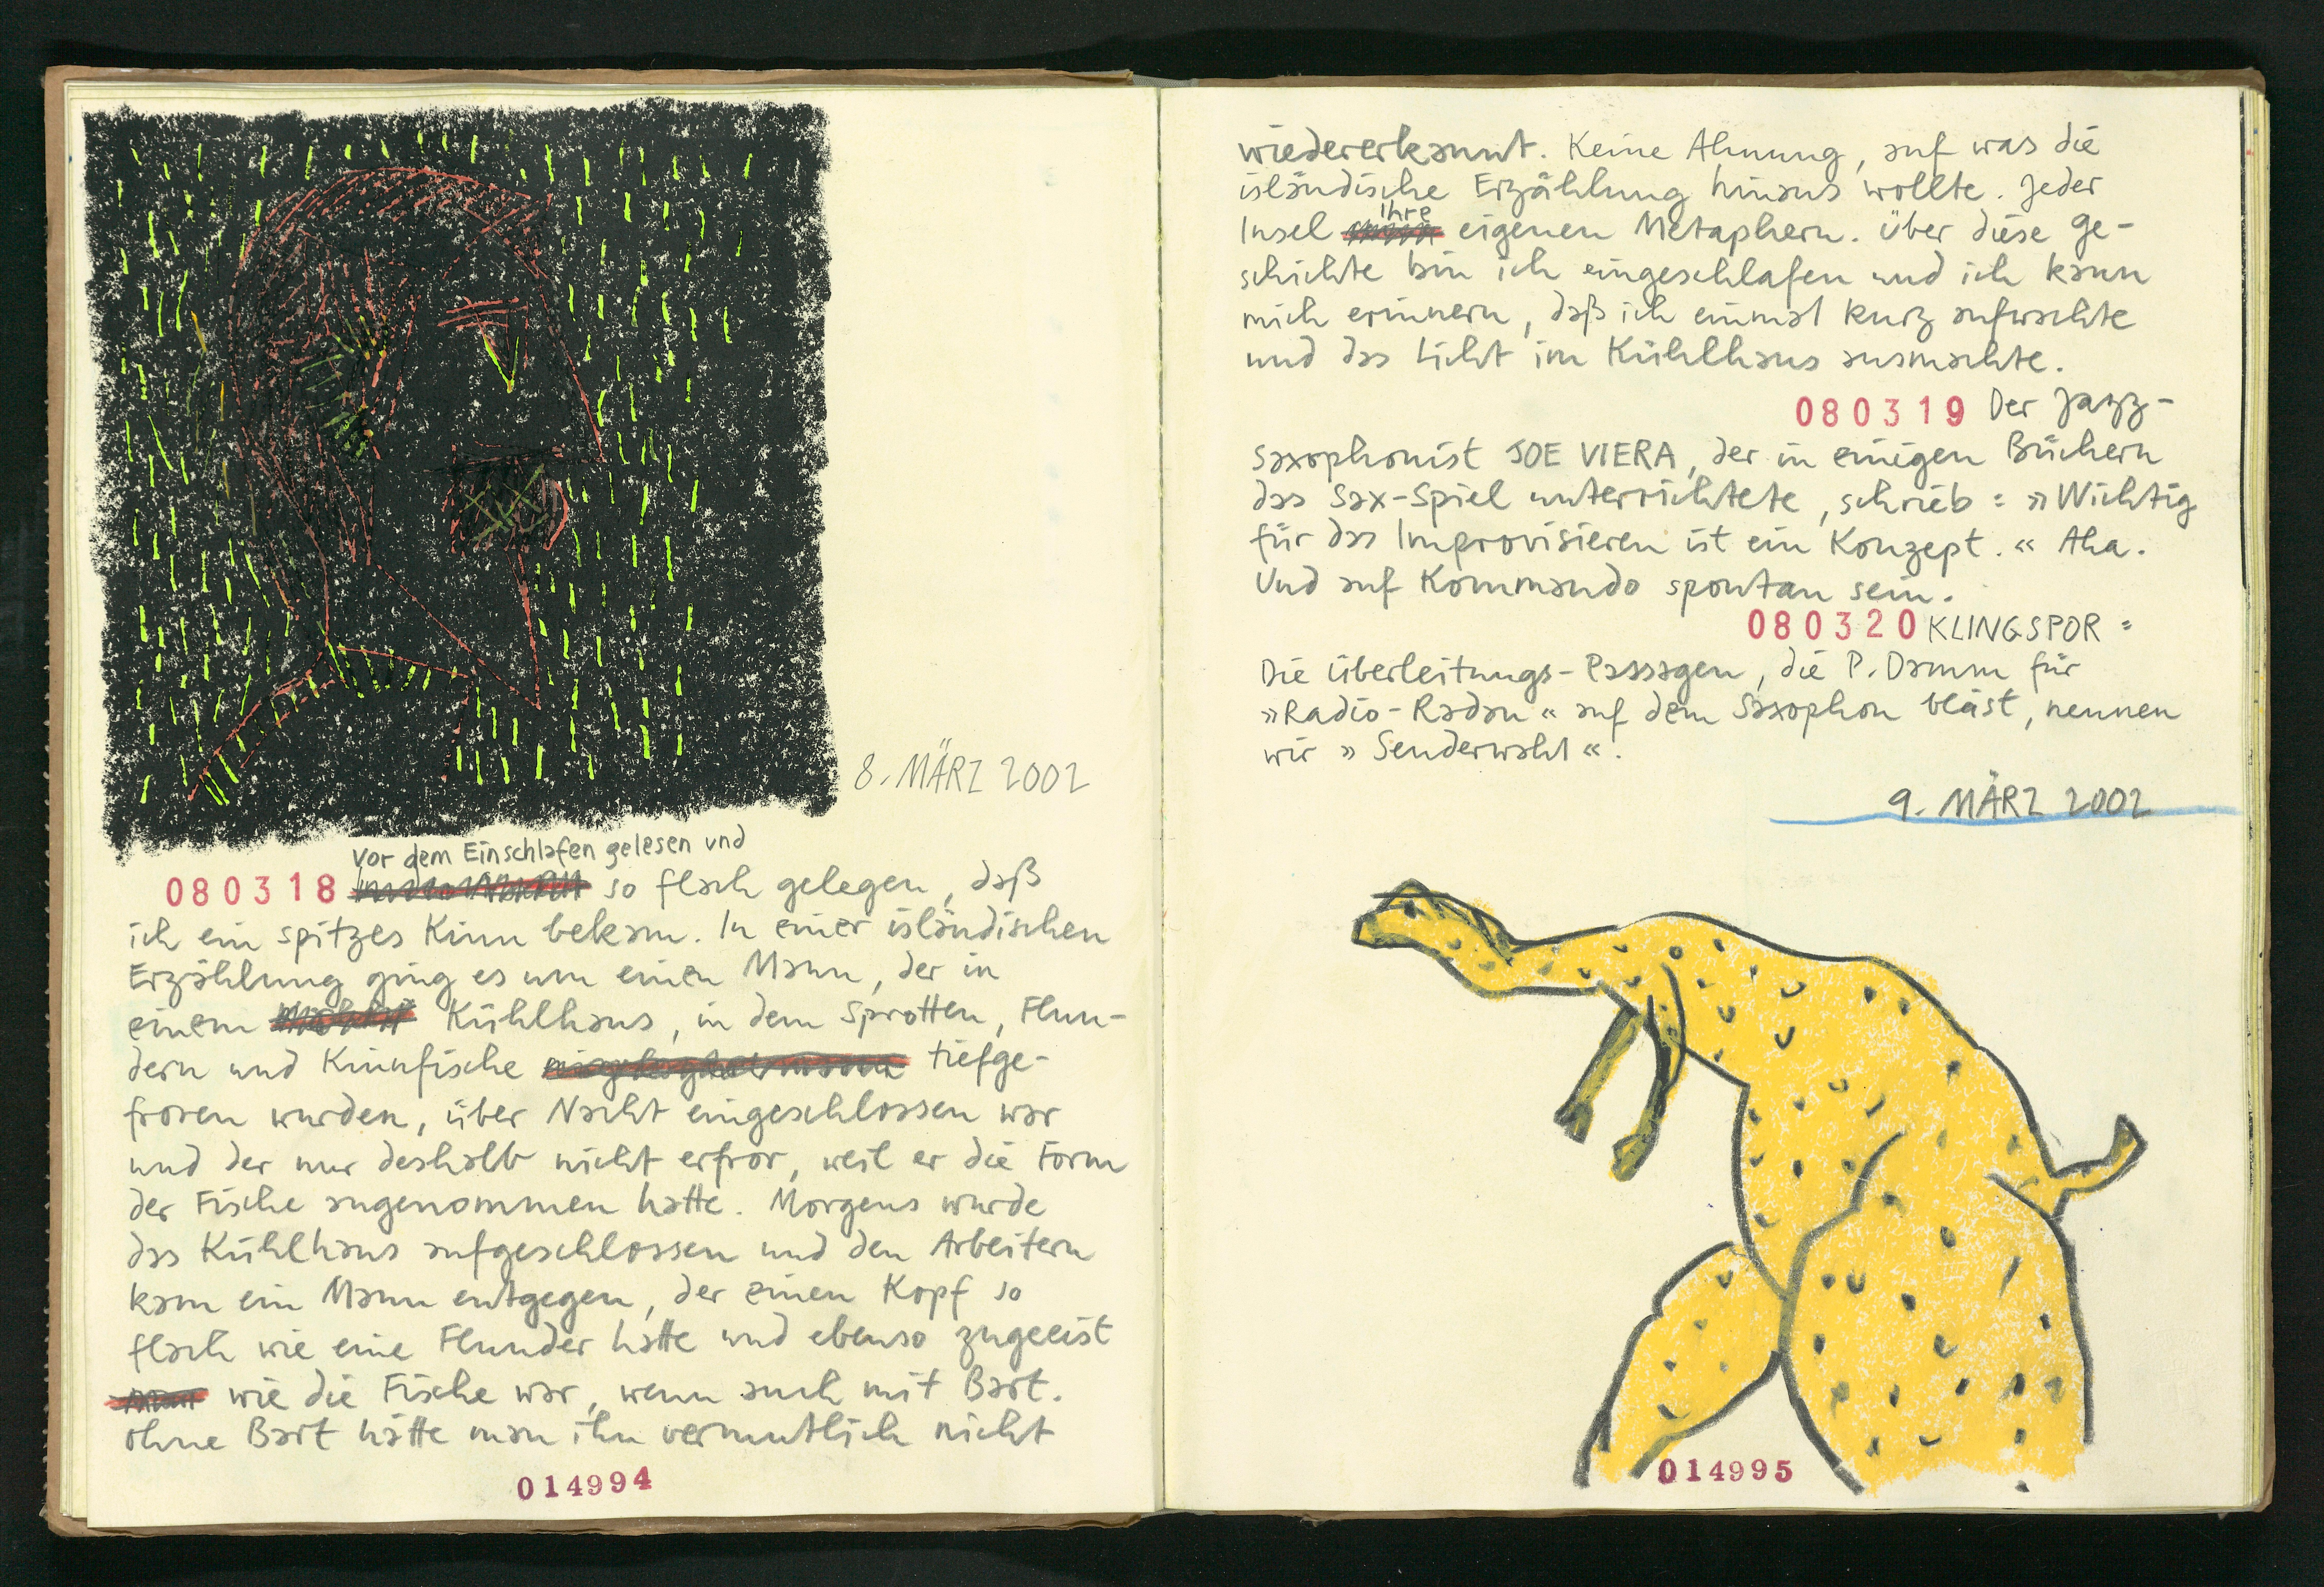 8. MÄRZ 2002
vor dem Einschlafen gelesen und
080318 so flach gelegen, daß
ich ein spitzes Kinn bekam. In einer isländischen
Erzählung ging es um einen Mann, der in
einem Kühlhaus, in dem Sprotten, Flun-
dern und Kinnfische tiefge-
froren wurden, über Nacht eingeschlossen war
und der nur deshalb nicht erfror, weil er die Form
der Fische angenommen hatte. Morgens wurde
das Kühlhaus aufgeschlossen und den Arbeitern
kam ein Mann entgegen, der einen Kopf so
flach wie eine Flunder hatte und ebenso zugeeist
wie die Fische war, wenn auch mit Bart.
ohne Bart hätte man ihn vermutlich nicht
014994
wiedererkannt. Keine Ahnung, auf was die
isländische Erzählung hinaus wollte. Jeder
Insel Ihre eigenen Metaphern. Über diese Ge-
schichte bin ich eingeschlafen und ich kann
mich erinnern, daß ich einmal kurz aufwachte
und das Licht im Kühlhaus ausmachte.
080319 Der Jazz-
saxophonist JOE VIERA, der in einigen Büchern
das Sax-Spiel unterrichtete, schrieb: »Wichtig
für das Improvisieren ist ein Konzept.« Aha.
Und auf Kommando spontan sein.
080320 KLINGSPOR:
Die Überleitungs-Passagen, die P. Damm für
»Radio-Radau« auf dem Saxophon bläst, nennen
wir »Senderwahl«.
9. MÄRZ 2002
014995